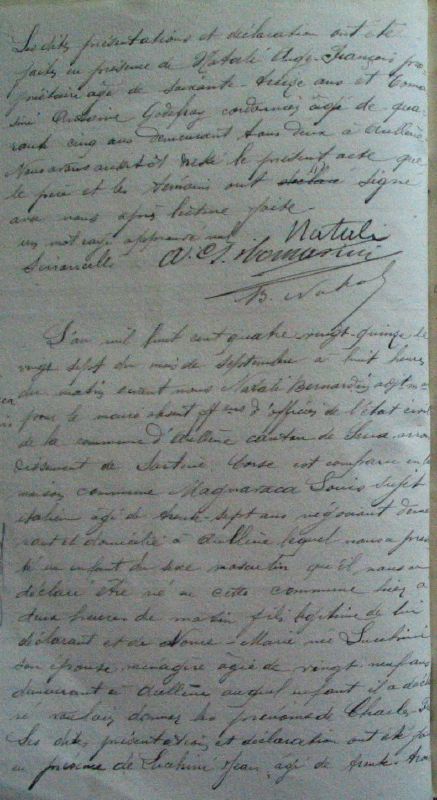 Les dites présentations et déclaration ont été
faites en présence de Natali Ange-François pro
priétaire agé de soixante-treize ans et Coma
Antoine Godefroy cordonnier âgé de qua
rante cinq ans demeurant tous deux à Aullène
Nous avons aussitôt rédigé le présent acte que
le père et les témoins ont déclaré signé
avec nous après lecture faite
un mot rayé approuvé nul
Natali
B. Natali
L'an mil huit cent quatre vingt-quinze le
vingt sept du mois de septembre à huit heures
du matin devant nous Natali Bernardin adjt m
pour le maire absent off d'officier de l'état civil
de la commune d'Aullène canton de Serra arron
dissement de Sartène Corse est comparu en la
maison commune Magnavacca Louis sujet
italien âgé de trente-sept ans négociant deme
rant et domicilié à Aullène lequel nous a prés
té un enfant du sexe masculin qu'il nous a
déclaré être né en cette commune hier à
deux heures du matin fils légitime de lui
déclarant et de Marie née Lucchini
son épouse ménagère agée de vingt neuf ans
demeurant à Aullène auquel enfant il a décla
ré vouloir donner les prénoms de Charles
Les dites présentation et déclaration ont été fai
en présence de Lucchini Jean agé de trente